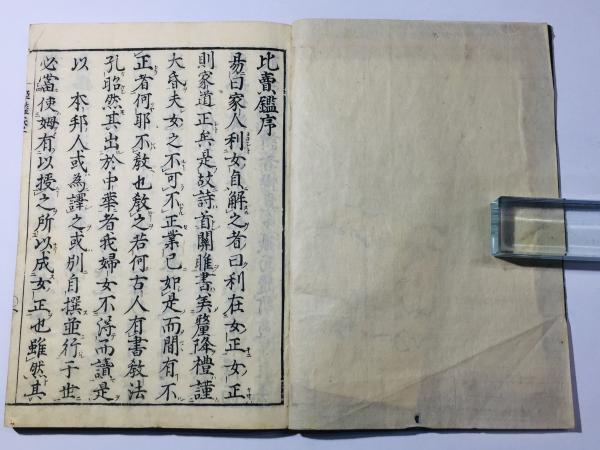 比賣鑑序
易曰家人利女貞解之者曰利在女正女正
則家道正矣是故詩首關雎書美釐降禮謹
大昏夫女之不可不正業已如是而間有不
正者何耶不敎也敎之若何古人有書敎法
孔昭然其出於中華者我婦女不得而讀是
以 本邦人或為譯之或別自撰並行于世
必當使姆有以授之所以成女正也雖然其